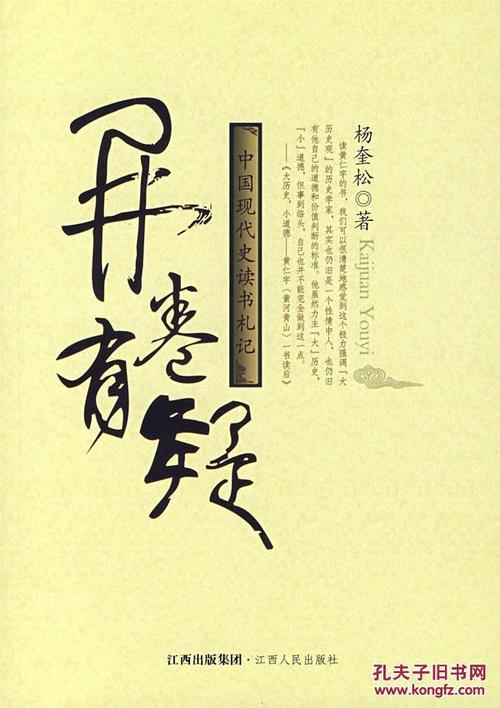 開卷有疑
中国现代史读书札记
杨奎松◎著
Kaijuan Youyi
读黄仁宇的书，我们可以很清楚地感觉到这个极力强调『大
历史观』的历史学家，其实也仍旧是一个性情中人，也仍旧
有他自己的道德和价值判断的标准。他虽然力主『大』历史，
『小』道德，但事到临头，自己也并不能完全做到这一点。
——《大历史，小道德——黄仁宇〈黄河青山〉一书读后》
江西出版集团·江西人民出版社
孔夫子旧书网
www.kongfz.com